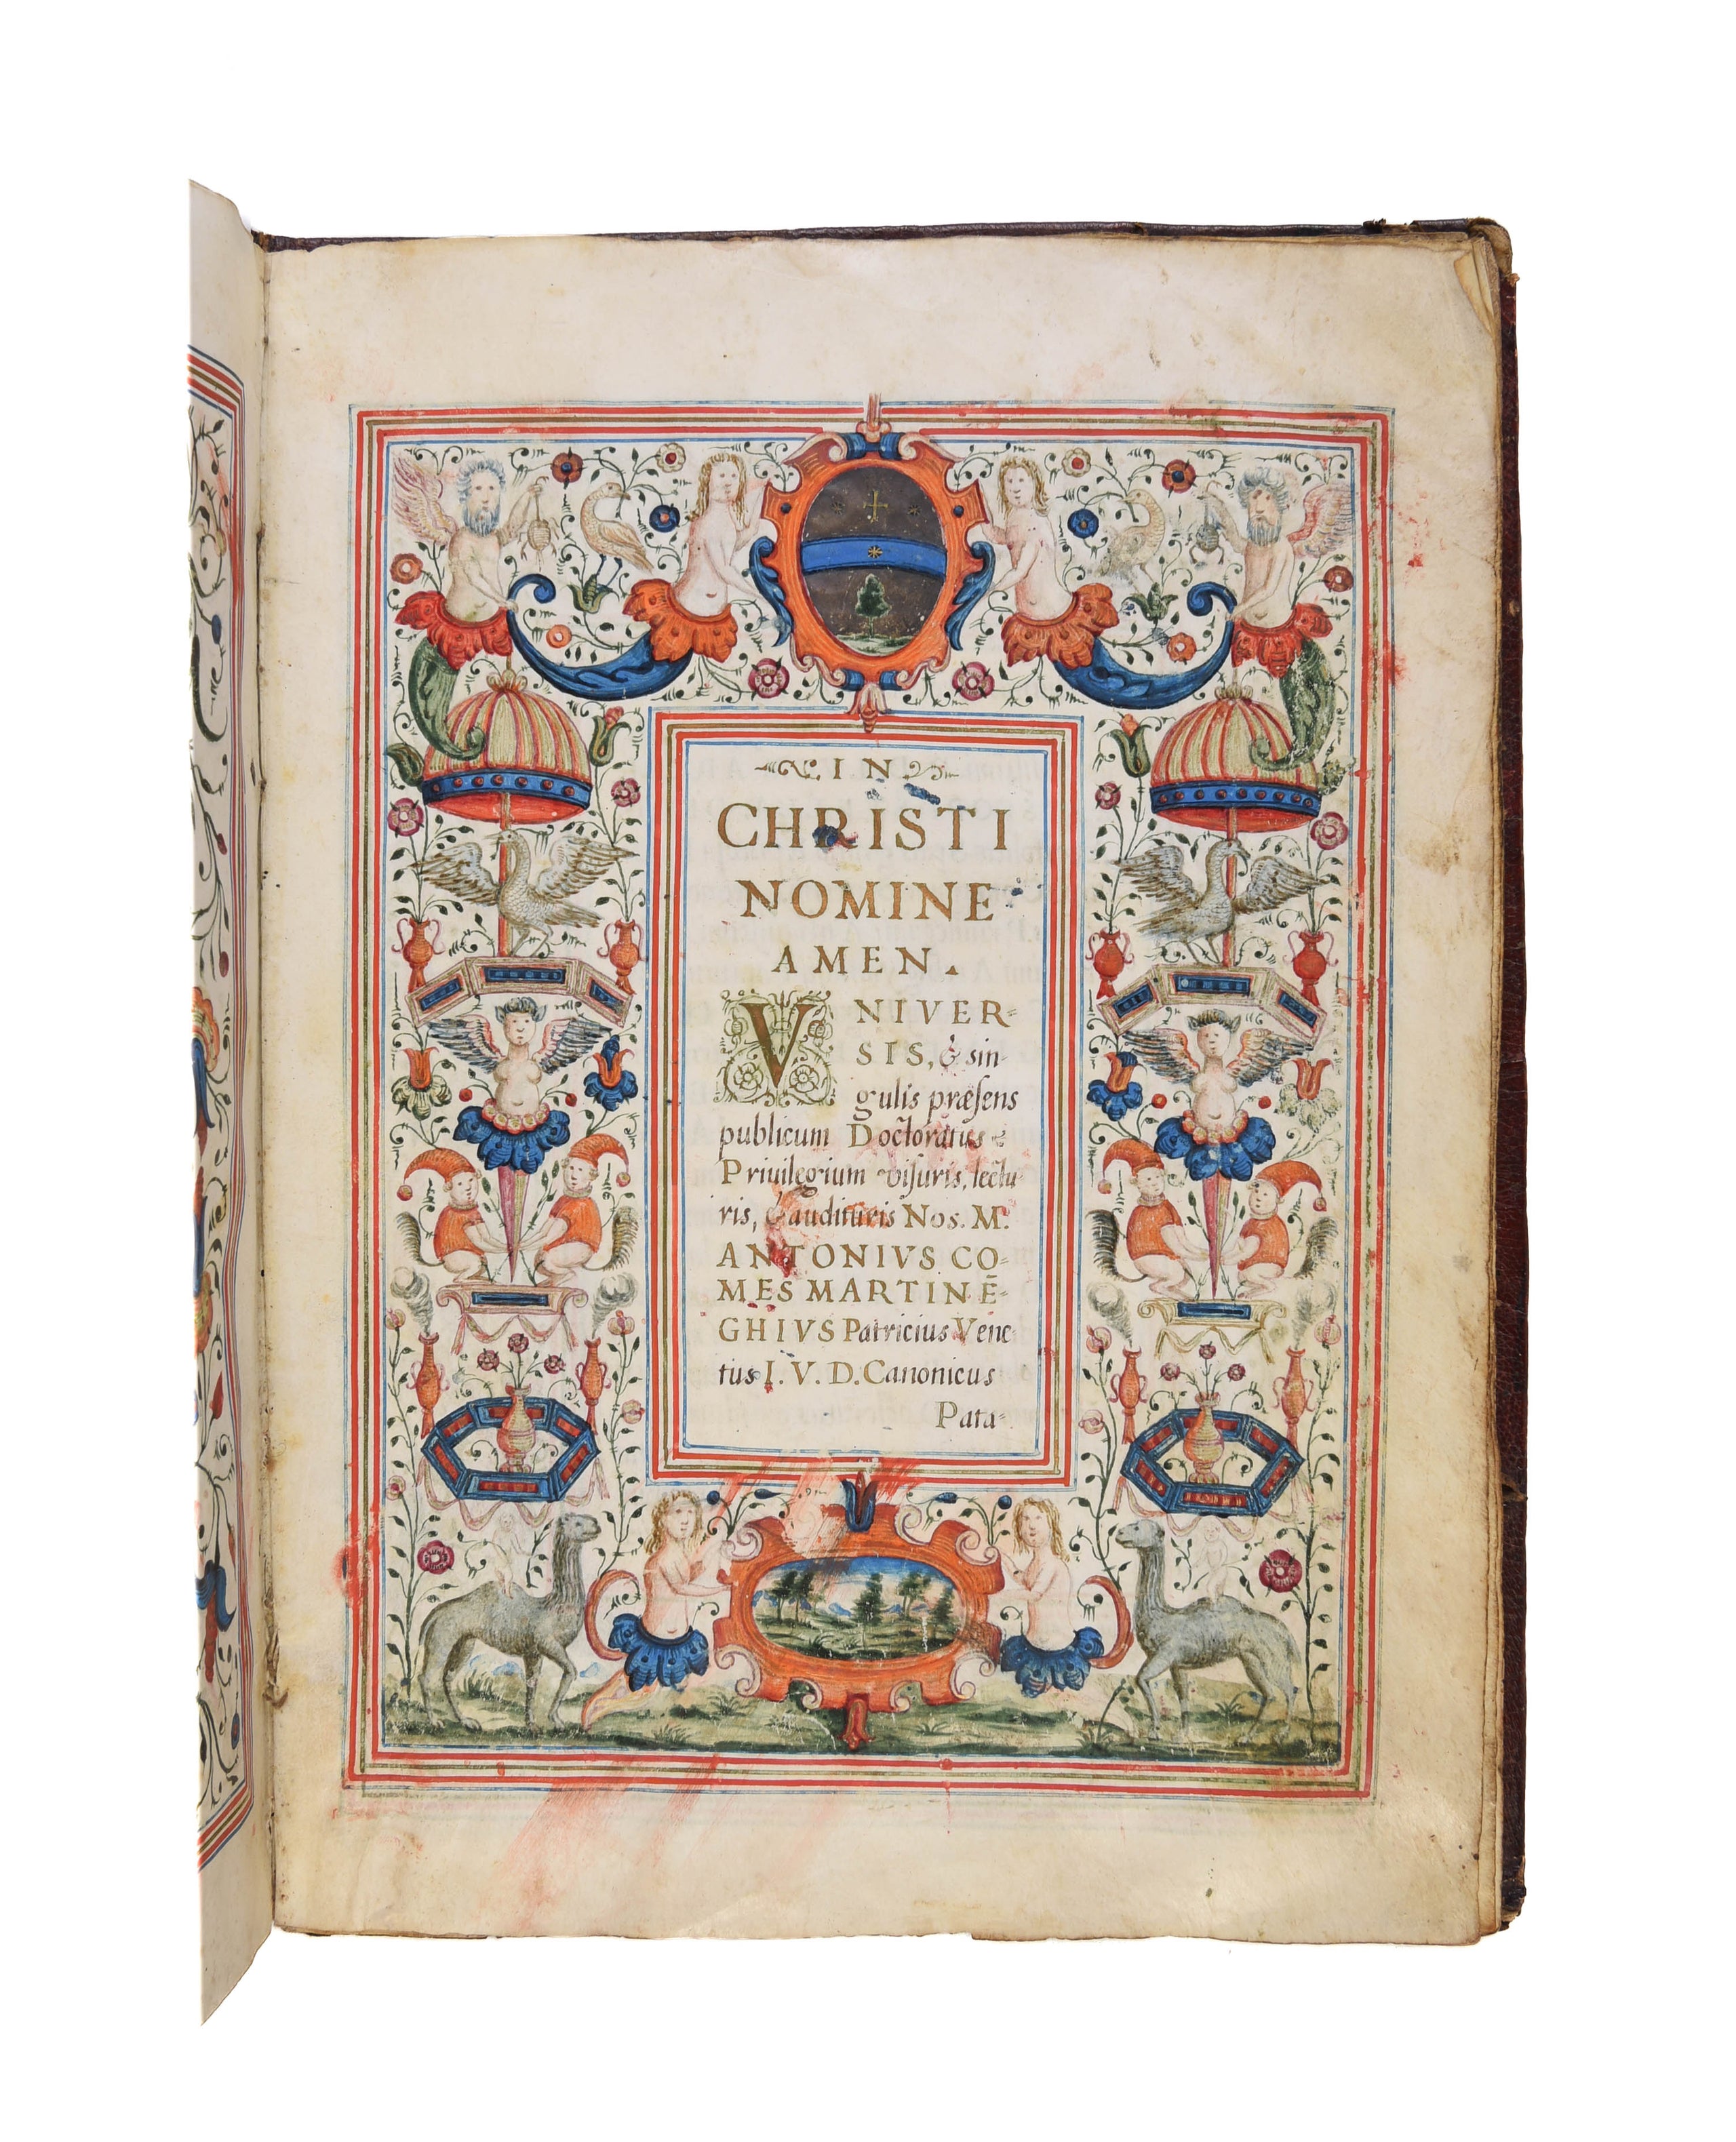 IN
CHRISTI
NOMINE
AMEN.
VNIVER=
SIS, & sin-
gulis præſens
publicum Doctoratus
Priuilegium viſuris, lectu-
ris, & audituris Nos. M.
ANTONIVS CO-
MES MARTINĒ-
GHIVS Patricius Vene
tus I. V. D. Canonicus
Pata=